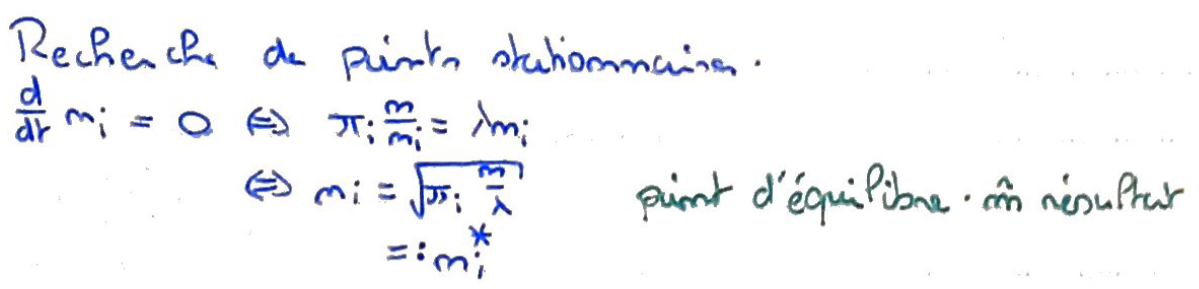 Recherche de points stationnaires.
d/dt m_i = 0 ⇔ π_i m/m_i = λm_i
⇔ m_i = √(π_i m/λ) point d'équilibre. m̂ résultat
=: m_i^*